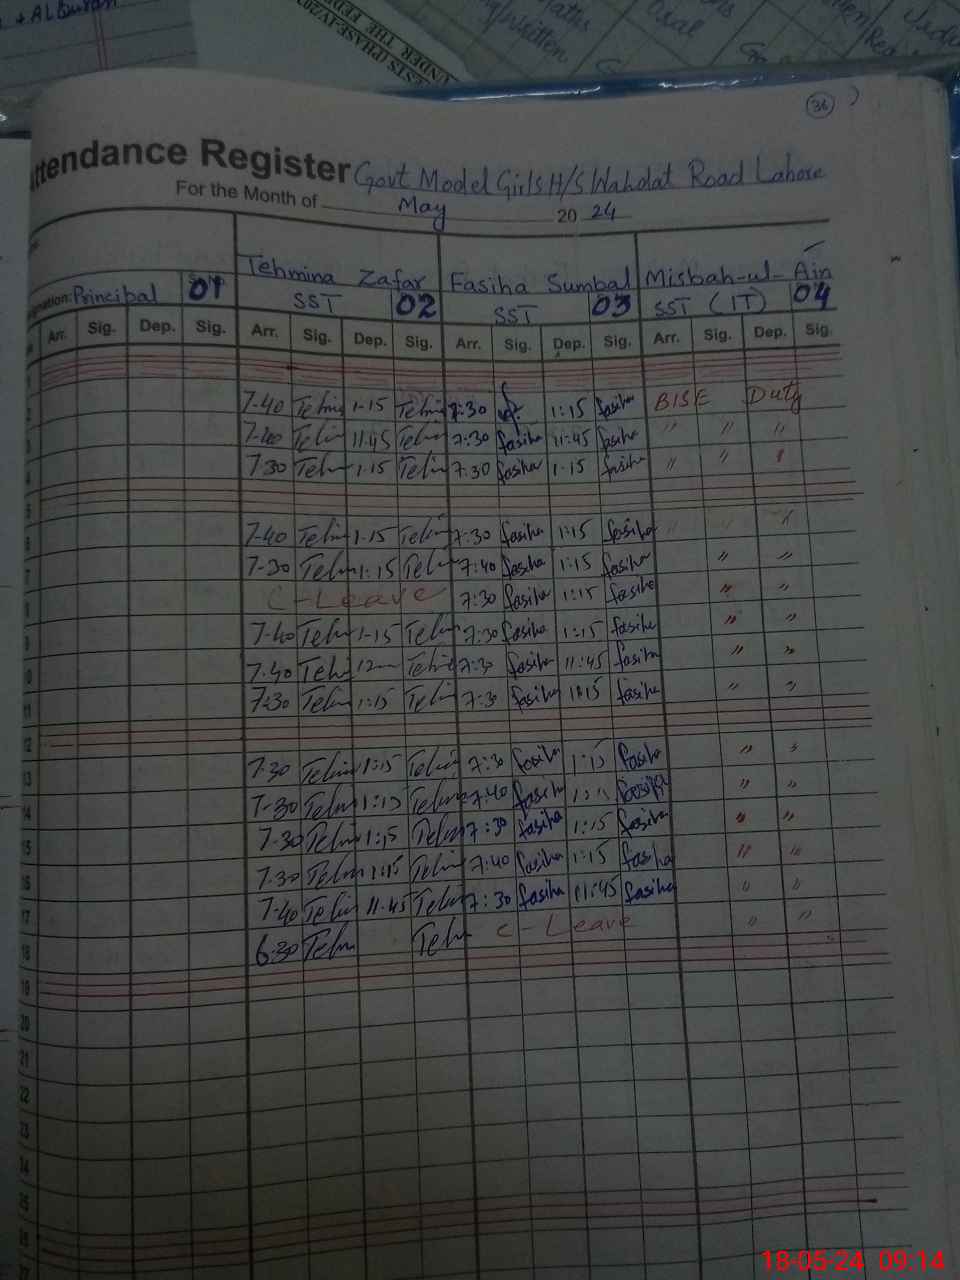 + ALBURAN
UNDER THE FED
Maths
Oral
written
36
Attendance Register Govt Model Girls H/S Wahdat Road Lahore
For the Month of May 2024
Tehmina Zafar Fasiha Sumbal Misbah-ul-Ain
Principal 01 SST 02 SST 03 SST (IT) 04
Arr. Sig. Dep. Sig. Arr. Sig. Dep. Sig. Arr. Sig. Dep. Sig. Arr. Sig. Dep. Sig.
1
2 7-40 1-15 7:30 1:15 fasiha BISE Duty
3 7-40 11.45 7:30 fasiha 11:45 fasiha " " "
4 7.30 1.15 7:30 fasiha 1:15 fasiha " "
5
6 7-40 1-15 7:30 fasiha 1:15 fasiha " "
7 7-30 1:15 7:40 fasiha 1:15 fasiha " "
8 C-Leave 7:30 fasiha 1:15 fasiha " "
9 7-40 1-15 7:30 fasiha 1:15 fasiha " "
10 7.40 7:30 fasiha 11:45 fasiha " "
11 7:30 1:15 7:30 fasiha 1:15 fasiha " "
12
13 7.30 1:15 7:30 fasiha 1:15 fasiha " "
14 7-30 1:15 7:40 fasiha fasiha " "
15 7.30 1:15 7:30 fasiha 1:15 fasiha " "
16 7.30 1:15 7:40 fasiha 1:15 fasiha " "
17 7:40 11.45 7:30 fasiha 11:45 fasiha " "
18 6:30 C-Leave " "
19
20
21
22
23
24
25
26
27
18-05-24 09:14